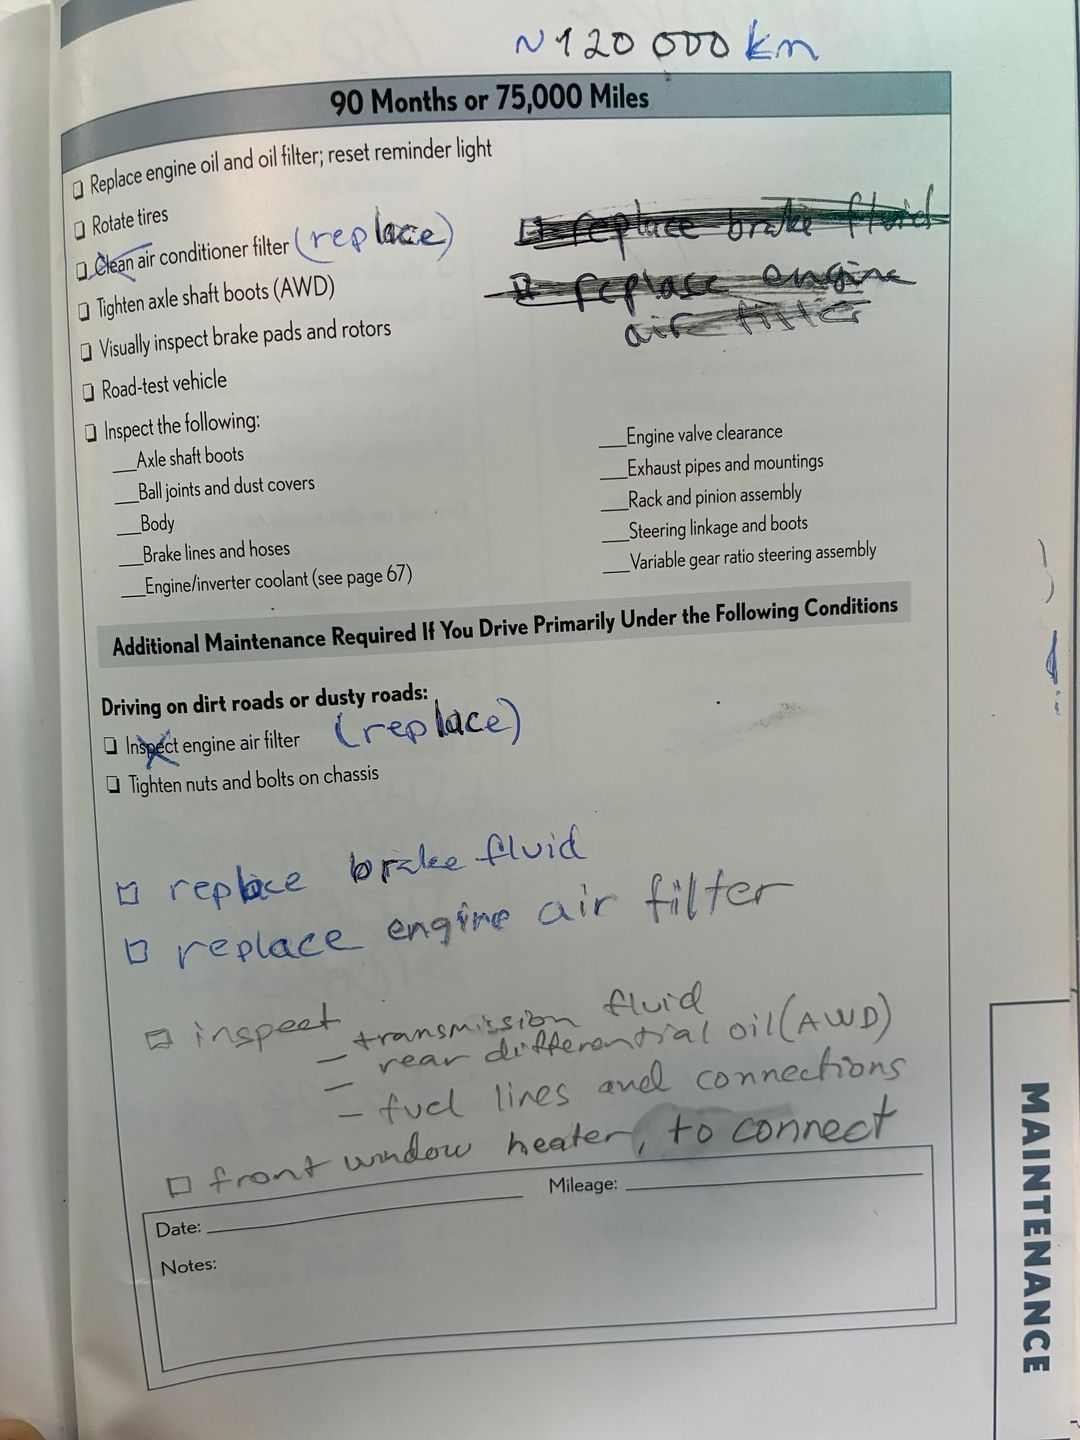 ~120 000 km
90 Months or 75,000 Miles
Replace engine oil and oil filter; reset reminder light
Rotate tires
Clean air conditioner filter (replace)
Tighten axle shaft boots (AWD)
Visually inspect brake pads and rotors
Road-test vehicle
replace brake fluid
replace engine
air filter
Inspect the following:
Axle shaft boots
Ball joints and dust covers
Body
Brake lines and hoses
Engine/inverter coolant (see page 67)
Engine valve clearance
Exhaust pipes and mountings
Rack and pinion assembly
Steering linkage and boots
Variable gear ratio steering assembly
Additional Maintenance Required If You Drive Primarily Under the Following Conditions
Driving on dirt roads or dusty roads:
Inspect engine air filter (replace)
Tighten nuts and bolts on chassis
replace brake fluid
replace engine air filter
inspect transmission fluid
– rear differential oil (AWD)
– fuel lines and connections
front window heater, to connect
Date:
Mileage:
Notes:
MAINTENANCE